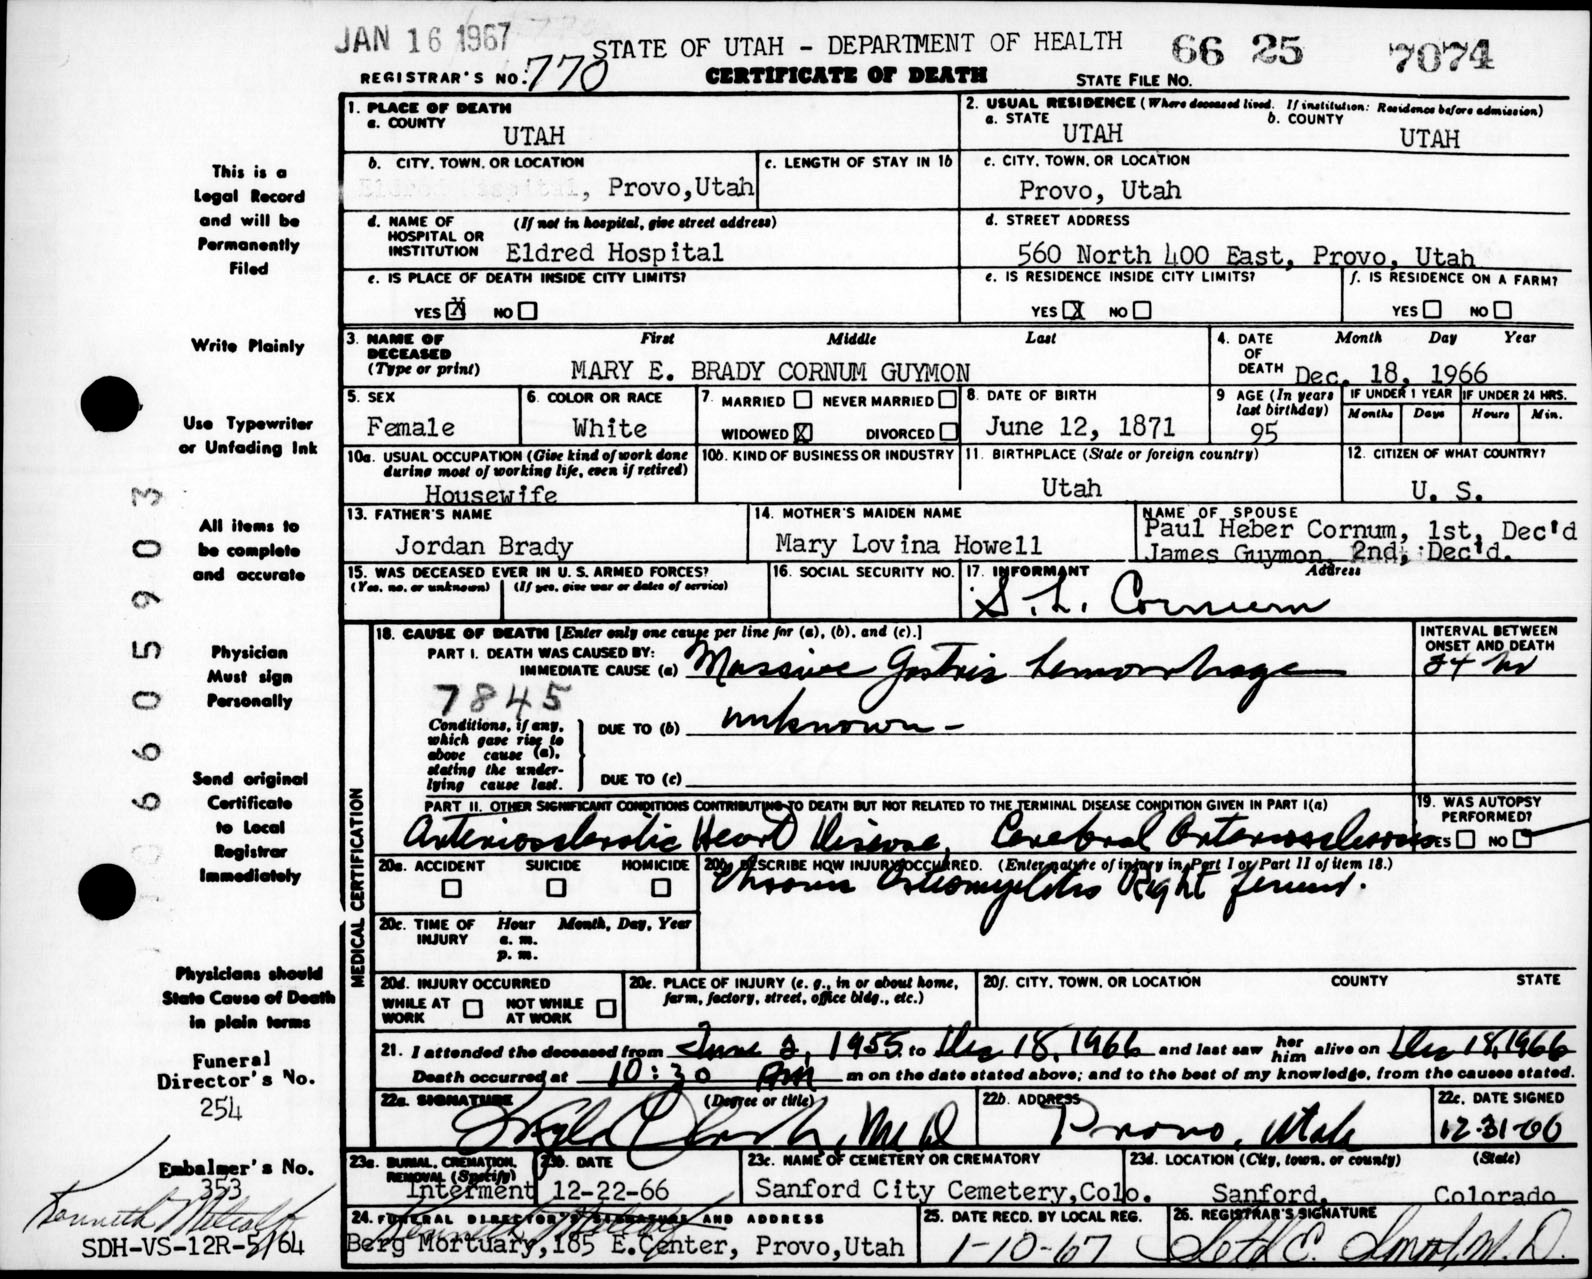 JAN 16 1967
STATE OF UTAH - DEPARTMENT OF HEALTH 66 25 7074
REGISTRAR'S NO. 770 CERTIFICATE OF DEATH STATE FILE NO.
1. PLACE OF DEATH
a. COUNTY
UTAH
2. USUAL RESIDENCE (Where deceased lived. If institution: Residence before admission)
a. STATE b. COUNTY
UTAH UTAH
b. CITY, TOWN, OR LOCATION c. LENGTH OF STAY IN 1b c. CITY, TOWN, OR LOCATION
Eldred Hospital, Provo,Utah Provo, Utah
d. NAME OF HOSPITAL OR INSTITUTION (If not in hospital, give street address)
Eldred Hospital
d. STREET ADDRESS
560 North 400 East, Provo, Utah
e. IS PLACE OF DEATH INSIDE CITY LIMITS?
YES X NO
e. IS RESIDENCE INSIDE CITY LIMITS?
YES X NO
f. IS RESIDENCE ON A FARM?
YES NO
3. NAME OF DECEASED (Type or print) First Middle Last
MARY E. BRADY CORNUM GUYMON
4. DATE OF DEATH Month Day Year
Dec. 18, 1966
5. SEX
Female
6. COLOR OR RACE
White
7. MARRIED NEVER MARRIED
WIDOWED X DIVORCED
8. DATE OF BIRTH
June 12, 1871
9 AGE (In years last birthday)
95
IF UNDER 1 YEAR IF UNDER 24 HRS.
Months Days Hours Min.
10a. USUAL OCCUPATION (Give kind of work done during most of working life, even if retired)
Housewife
10b. KIND OF BUSINESS OR INDUSTRY
11. BIRTHPLACE (State or foreign country)
Utah
12. CITIZEN OF WHAT COUNTRY?
U. S.
13. FATHER'S NAME
Jordan Brady
14. MOTHER'S MAIDEN NAME
Mary Lovina Howell
NAME OF SPOUSE
Paul Heber Cornum, 1st, Dec'd
James Guymon, 2nd, Dec'd.
15. WAS DECEASED EVER IN U. S. ARMED FORCES?
(Yes, no, or unknown) (If yes, give war or dates of service)
16. SOCIAL SECURITY NO.
17. INFORMANT Address
S. L. Cornum
MEDICAL CERTIFICATION
18. CAUSE OF DEATH [Enter only one cause per line for (a), (b), and (c).]
INTERVAL BETWEEN ONSET AND DEATH
PART I. DEATH WAS CAUSED BY:
IMMEDIATE CAUSE (a) Massive Gastric hemorrhage 24 hr
7845
Conditions, if any, which gave rise to above cause (a), stating the underlying cause last.
DUE TO (b) unknown -
DUE TO (c)
PART II. OTHER SIGNIFICANT CONDITIONS CONTRIBUTING TO DEATH BUT NOT RELATED TO THE TERMINAL DISEASE CONDITION GIVEN IN PART I(a)
Arteriosclerotic Heart Disease, Cerebral Arteriosclerosis
Chronic Osteomyelitis Right femur.
19. WAS AUTOPSY PERFORMED?
YES NO
20a. ACCIDENT SUICIDE HOMICIDE
20b. DESCRIBE HOW INJURY OCCURRED. (Enter nature of injury in Part I or Part II of item 18.)
20c. TIME OF INJURY Hour Month, Day, Year
a. m.
p. m.
20d. INJURY OCCURRED
WHILE AT WORK NOT WHILE AT WORK
20e. PLACE OF INJURY (e. g., in or about home, farm, factory, street, office bldg., etc.)
20f. CITY, TOWN, OR LOCATION COUNTY STATE
21. I attended the deceased from June 2, 1955 to Dec 18, 1966 and last saw her him alive on Dec 18, 1966
Death occurred at 10:30 PM m on the date stated above; and to the best of my knowledge, from the causes stated.
22a. SIGNATURE (Degree or title)
M D
22b. ADDRESS
Provo, Utah
22c. DATE SIGNED
12-31-66
23a. BURIAL, CREMATION, REMOVAL (Specify)
Interment
23b. DATE
12-22-66
23c. NAME OF CEMETERY OR CREMATORY
Sanford City Cemetery,Colo.
23d. LOCATION (City, town, or county) (State)
Sanford, Colorado
24. FUNERAL DIRECTOR'S SIGNATURE AND ADDRESS
Berg Mortuary,185 E.Center, Provo,Utah
25. DATE RECD. BY LOCAL REG.
1-10-67
26. REGISTRAR'S SIGNATURE
M. D.
This is a
Legal Record
and will be
Permanently
Filed
Write Plainly
Use Typewriter
or Unfading Ink
All items to
be complete
and accurate
Physician
Must sign
Personally
Send original
Certificate
to Local
Registrar
Immediately
Physicians should
State Cause of Death
in plain terms
Funeral
Director's No.
254
Embalmer's No.
353
Kenneth Metcalf
SDH-VS-12R-5/64
06605903